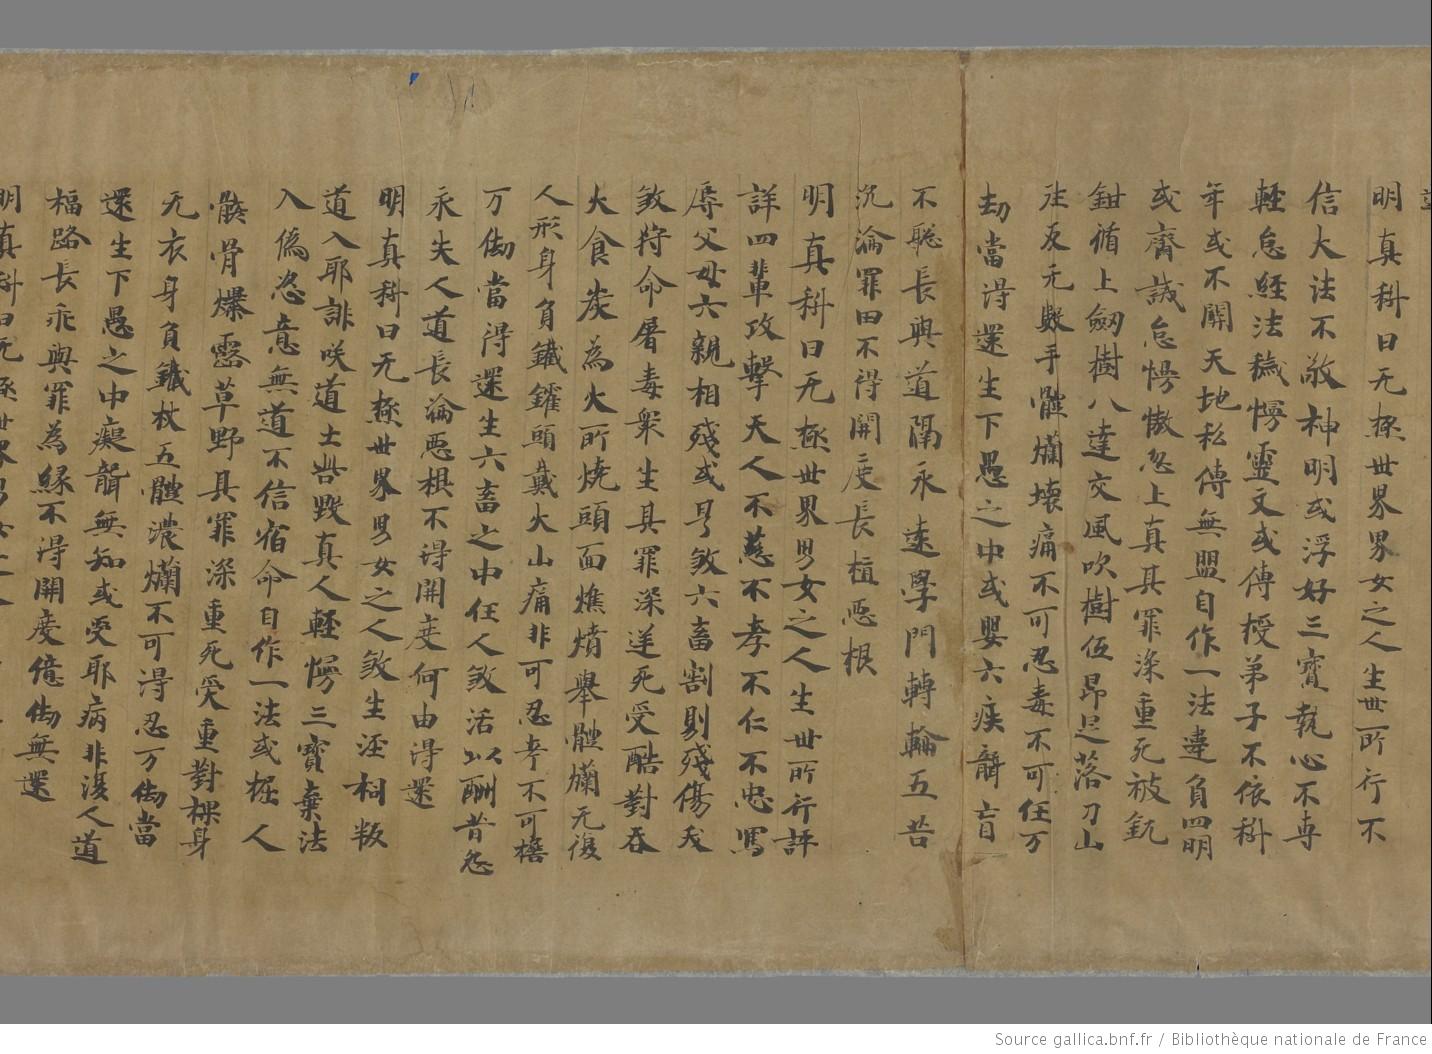 明真科曰无極世界男女之人生世所行不
信大法不敬神明或浮好三寳執心不專
輕怠經法穢慢靈文或傳授弟子不依科
年或不開天地私傳無盟自作一法違負四明
或齊誠怠慢慠忽上真其罪深重死被
鉗循上劔樹八達交風吹樹伍昂足落刀山
往反无數手體爛壊痛不可忍毒不可任万
劫當淂還生下愚之中或嬰六疾聾盲
不聦長與道隔永遠學門轉輪五苦
沉淪罪田不得開度長植惡根
明真科曰无極世界男女之人生世所行評
詳四輩攻擊天人不慈不孝不仁不忠罵
辱父母六親相殘或 煞六畜割剔殘傷
煞將命屠毒衆生其罪深逆死受酷對吞
火食炭為火所燒頭面燋燌舉體爛无復
人形身負鐵鑊頭戴火山痛非可忍考不可檐
万劫當得還生六畜之中任人煞活以酬昔怨
永失人道長淪惡根不得開度何由得還
明真科曰无極世界男女之人煞生淫 叛
道入耶誹咲道士呰毀真人輕慢三寳棄法
入偽恣意無道不信宿命自作一法或掘人
骸骨爆露草野其罪深重死受重對裸身
无衣身負鐵杖五體濃爛不可得忍万劫當
還生下愚之中癡聾無知或受耶病非復人道
福路長乖與罪為緣不得開度億劫無還
明真科曰无極世界男女之人